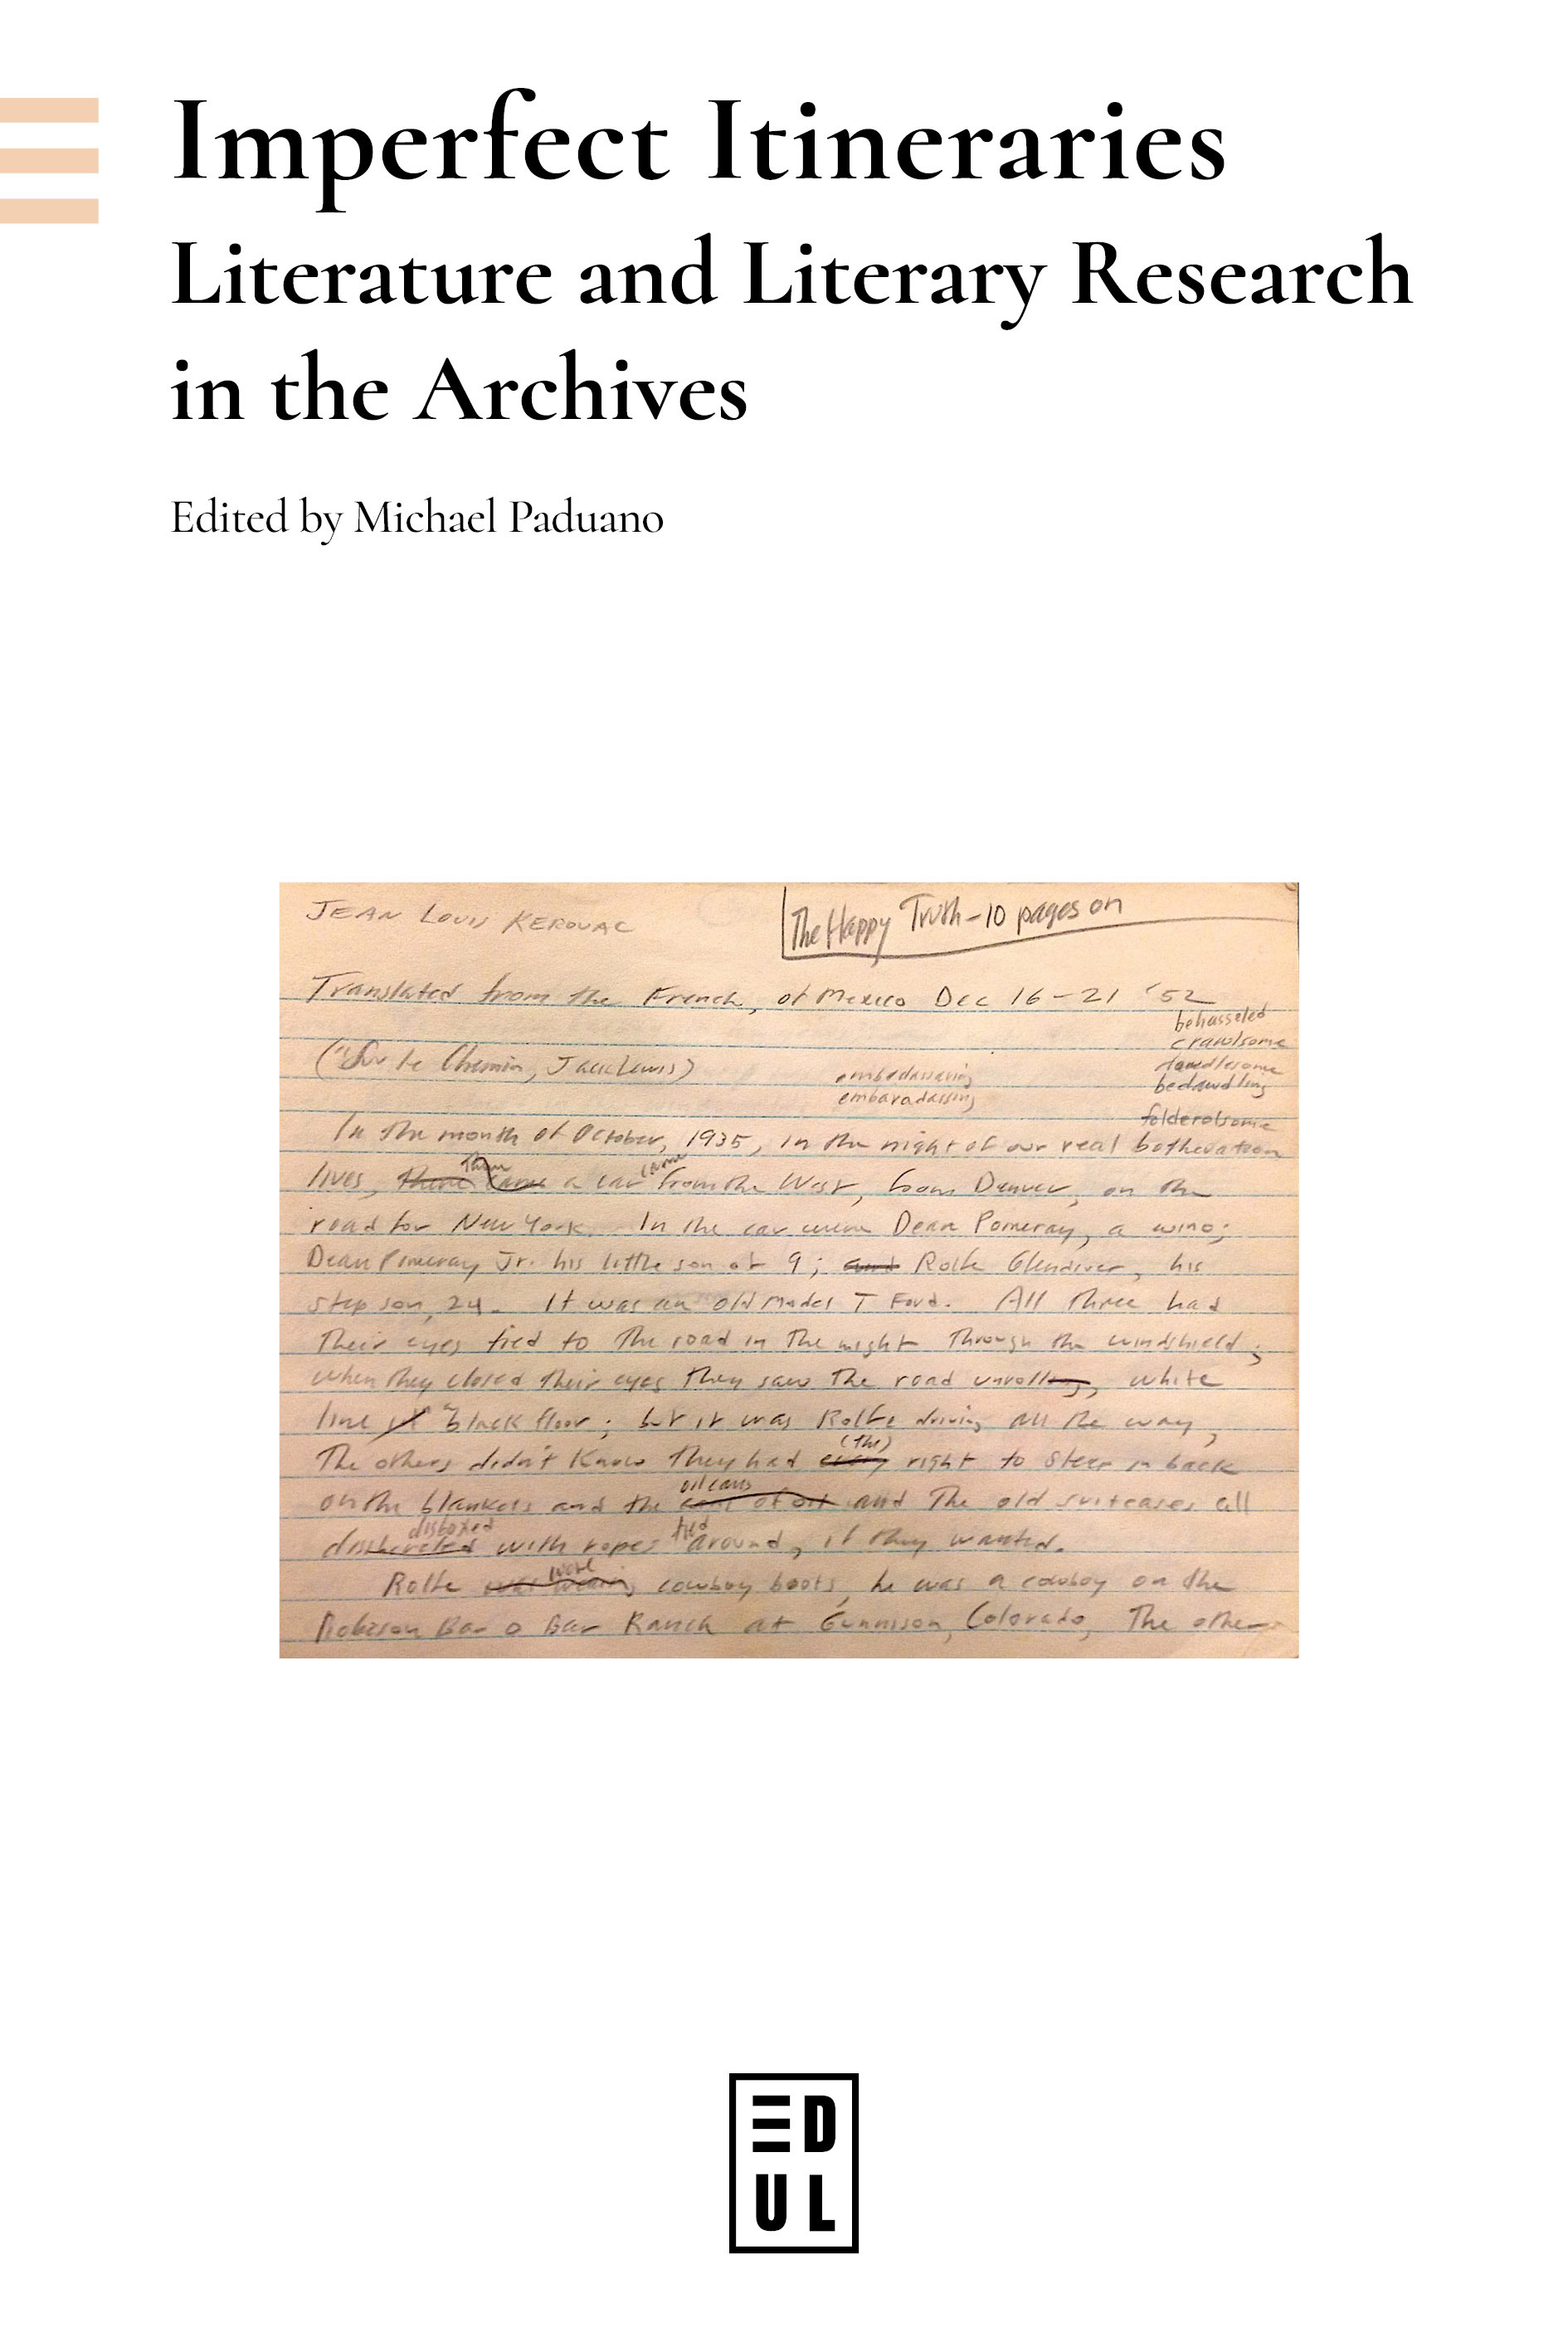 Imperfect Itineraries
Literature and Literary Research
in the Archives
Edited by Michael Paduano
JEAN LOUIS KEROUAC
The Happy Truth - 10 pages on
Translated from the French, of Mexico Dec 16-21 '52
behasseled
crawlsome
("Sur le Chemin, Jack Lewis)
dawdlesome
bedawdling
embaradassing
folderolsome
In the month of October, 1935, in the night of our real botheration
lives, there came a car came from the West, from Denver, on the
road for New York. In the car were Dean Pomeray, a wino;
Dean Pomeray Jr. his little son of 9; and Rolfe Glendiver, his
step son, 24. It was an old Model T Ford. All three had
their eyes tied to the road in the night through the windshield;
when they closed their eyes they saw the road unrolling, white
line black floor; but it was Rolfe driving all the way,
(the)
The others didn't know they had every right to steer in back
oilcans
on the blankets and the cans of oil and the old suitcases all
disboxed tied
with ropes around, if they wanted.
wore
Rolfe was wearing cowboy boots, he was a cowboy on the
Robison Bar O Bar Ranch at Gunnison, Colorado, The other
ED
UL